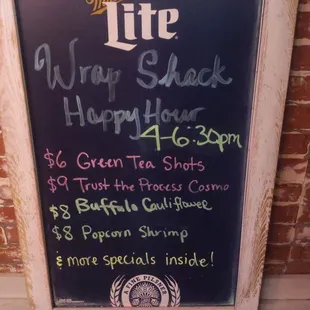 Miller
Lite
Wrap Shack
Happy Hour
4-6:30pm
$6 Green Tea Shots
$9 Trust the Process Cosmo
$8 Buffalo Cauliflower
$8 Popcorn Shrimp
& more specials inside!
A FINE PILSNER